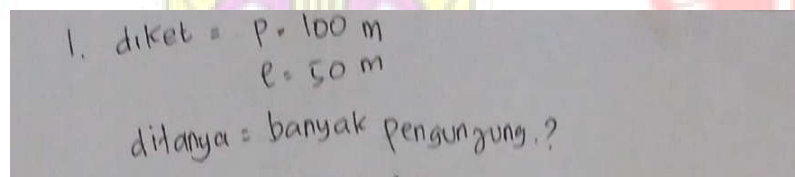 1. diket = p = 100 m
l = 50 m
ditanya = banyak pengunjung.?